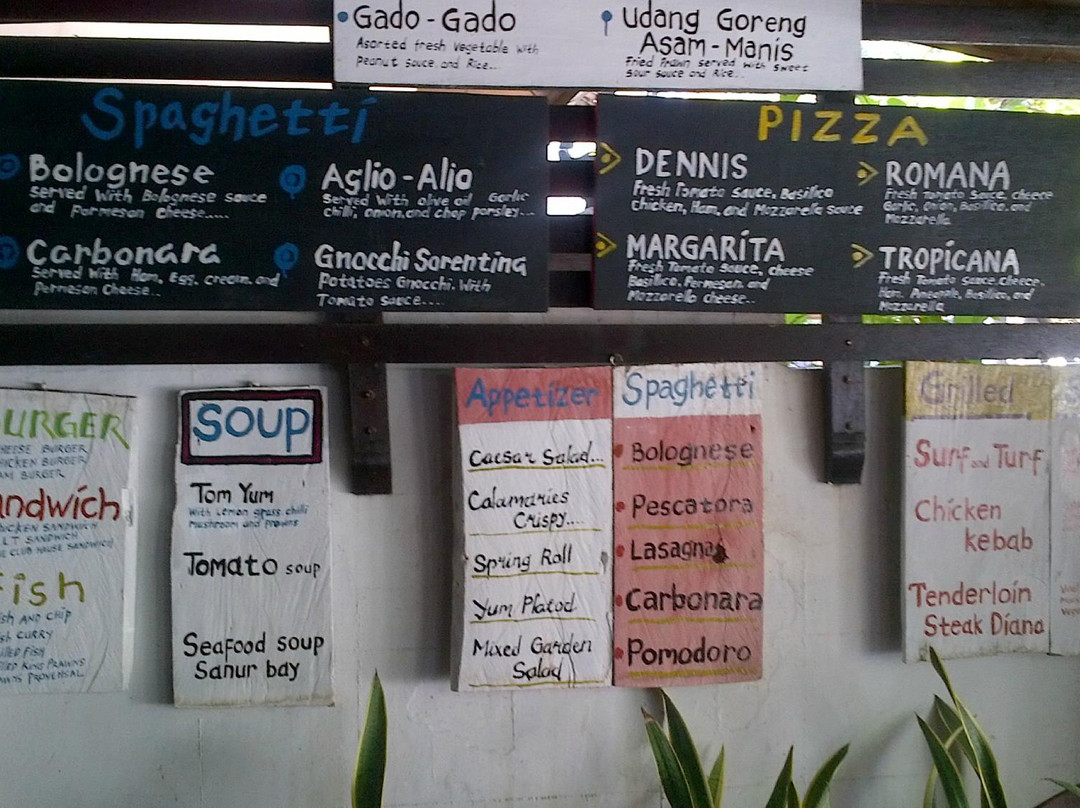 Gado - Gado
Asorted fresh Vegetable with
Peanut sauce and Rice...
Udang Goreng
Asam - Manis
Fried Prawn served with sweet
sour sauce and Rice..
Spaghetti
Bolognese
Served With Bolognese sauce
and Parmesan cheese.....
Aglio - Alio
Served With olive oil Garlic
chilli, onion, and chop parsley...
Carbonara
Served With Ham, Egg, cream, and
Permesan Cheese..
Gnocchi Sorentina
Potatoes Gnocchi. With
Tomato Sauce....
PIZZA
DENNIS
Fresh Tomato Sauce, Basilico
Chicken, Ham, and Mozzarella Sauce
ROMANA
Fresh Tomato Sauce, cheece
Garlic, Onion, Basilico, and
Mozzarella
MARGARITA
Fresh Tomato Sauce, cheese
Basilico, Permesan, and
Mozzarella cheese..
TROPICANA
Fresh Tomato Sauce, cheece.
Ham, Pineaple, Basilico, and
Mozzarella
URGER
HEESE BURGER
HICKEN BURGER
AM BURGER
ndwich
HICKEN SANDWICH
LT SANDWICH
E CLUB HOUSE SANDWICH
Fish
ISH AND CHIP
SH CURRY
ILLED FISH
LLED KING PRAWNS
AWNS PROVENSAL
SOUP
Tom Yum
With Lemon grass, chilli
mushroom and prawns
Tomato soup
Seafood soup
Sanur bay
Appetizer
Caesar Salad...
Calamaries
Crispy....
Spring Roll
Yum Platod
Mixed Garden
Salad
Spaghetti
Bolognese
Pescatora
Lasagna
Carbonara
Pomodoro
Grilled
Surf and Turf
Chicken
kebab
Tenderloin
Steak Diana